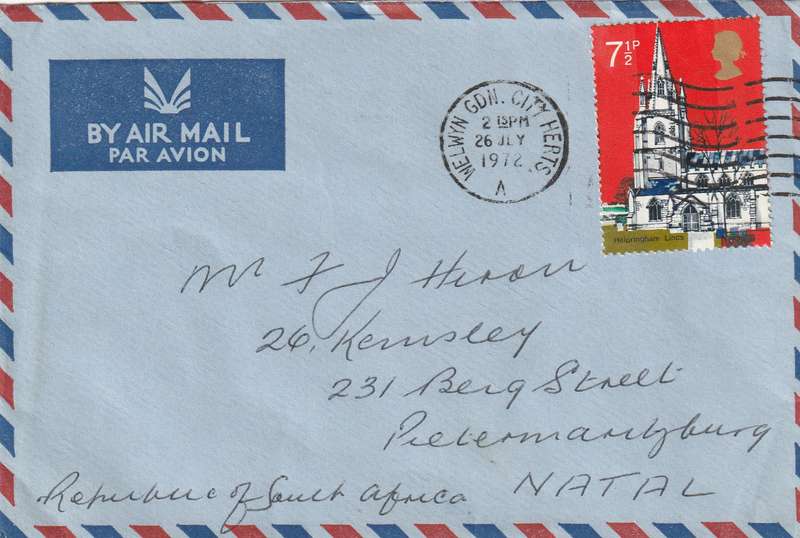 BY AIR MAIL
PAR AVION
WELWYN GDN. CITY HERTS.
2 15PM
26 JLY
1972
A
7½P
Helpringham Lincs
Mr F J Heron
26, Kemsley
231 Berg Street
Pietermaritzburg
Republic of South Africa NATAL